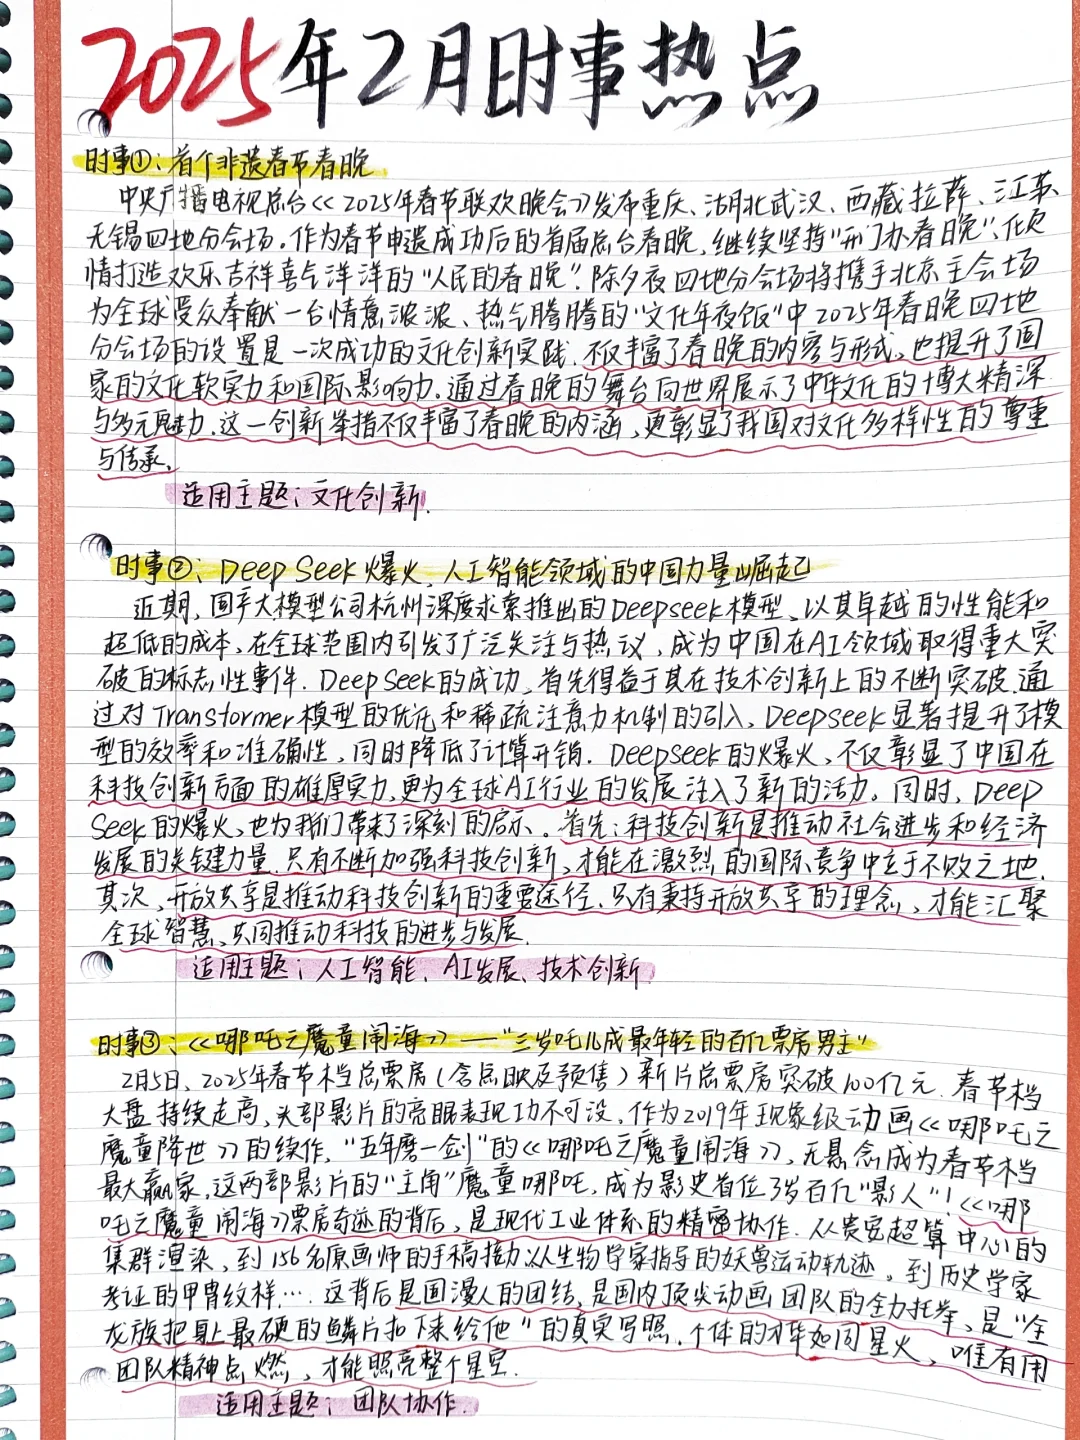 2025年2月时事热点
时事①：首个非遗春节春晚
中央广播电视总台《2025年春节联欢晚会》发布重庆、湖北武汉、西藏拉萨、江苏
无锡四地分会场。作为春节申遗成功后的首届总台春晚，继续坚持“开门办春晚”、倾
情打造欢乐吉祥喜气洋洋的“人民的春晚”。除夕夜四地分会场将携手北京主会场
为全球受众奉献一台情意浓浓、热气腾腾的“文化年夜饭”中2025年春晚四地
分会场的设置是一次成功的文化创新实践．不仅丰富了春晚的内容与形式，也提升了国
家的文化软实力和国际影响力．通过春晚的舞台向世界展示了中华文化的博大精深
与多元魅力．这一创新举措不仅丰富了春晚的内涵、更彰显了我国对文化多样性的尊重
与传承．
适用主题：文化创新．
时事②：DeepSeek爆火，人工智能领域的中国力量崛起
近期，国产大模型公司杭州深度求索推出的Deepseek模型、以其卓越的性能和
超低的成本，在全球范围内引发了广泛关注与热议，成为中国在AI领域取得重大突
破的标志性事件．DeepSeek的成功，首先得益于其在技术创新上的不断突破．通
过对Transformer模型的优化和稀疏注意力机制的引入，Deepseek显著提升了模
型的效率和准确性，同时降低了计算开销．Deepseek的爆火，不仅彰显了中国在
科技创新方面的雄厚实力，更为全球AI行业的发展注入了新的活力。同时，Deep
Seek的爆火，也为我们带来了深刻的启示。首先：科技创新是推动社会进步和经济
发展的关键力量．只有不断加强科技创新，才能在激烈的国际竞争中立于不败之地．
其次，开放共享是推动科技创新的重要途径．只有秉持开放共享的理念，才能汇聚
全球智慧、共同推动科技的进步与发展．
适用主题：人工智能、AI发展、技术创新
时事③：《哪吒之魔童闹海》——“三岁吒儿成最年轻的百亿票房男主”
2月5日，2025年春节档总票房（含点映及预售）新片总票房突破100亿元．春节档
大盘持续走高，头部影片的亮眼表现功不可没，作为2019年现象级动画《哪吒之
魔童降世》的续作，“五年磨一剑”的《哪吒之魔童闹海》，无悬念成为春节档
最大赢家，这两部影片的“主角”魔童哪吒，成为影史首位3岁百亿“影人”！《哪
吒之魔童闹海》票房奇迹的背后，是现代工业体系的精密协作．从贵安超算中心的
集群渲染，到156名原画师的手稿接力以生物学家指导的妖兽运动轨迹。到历史学家
考证的甲胄纹样…．这背后是国漫人的团结，是国内顶尖动画团队的全力托举，是“全
龙族把身上最硬的鳞片扣下来给他”的真实写照．个体的才华如同星火，唯有用
团队精神点燃，才能照亮整个星空．
适用主题：团队协作．